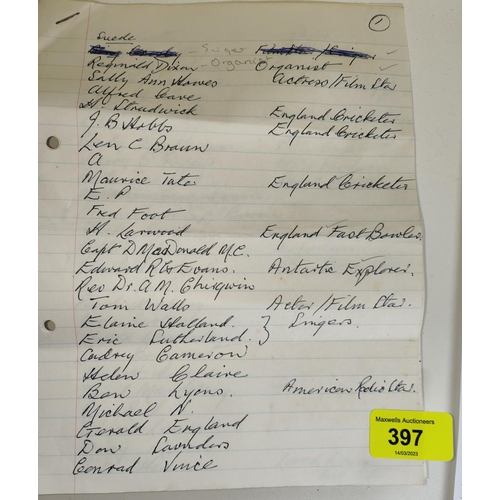 1
Suede
Bing Crosby - Singer Film Star / Singer
Reginald Dixon - Organist Organist
Sally Ann Howes Actress/Film Star
Alfred Cave
H. Strudwick England Cricketer
J B Hobbs England Cricketer
Len C Braun
A
Maurice Tate England Cricketer
E. P
Fred Foot
H. Larwood England Fast Bowler.
Capt D MacDonald M.C.
Edward R G Evans. Antartic Explorer.
Rev Dr. A. M. Chirgwin
Tom Walls Actor/Film Star.
Elaine Holland. } Singers.
Eric Sutherland.
Cameron
Helen Claire
Ben Lyons. American Radio Star.
Michael N.
Gerald England
Don Saunders
Conrad Vince
Maxwells Auctioneers
397
14/03/2023